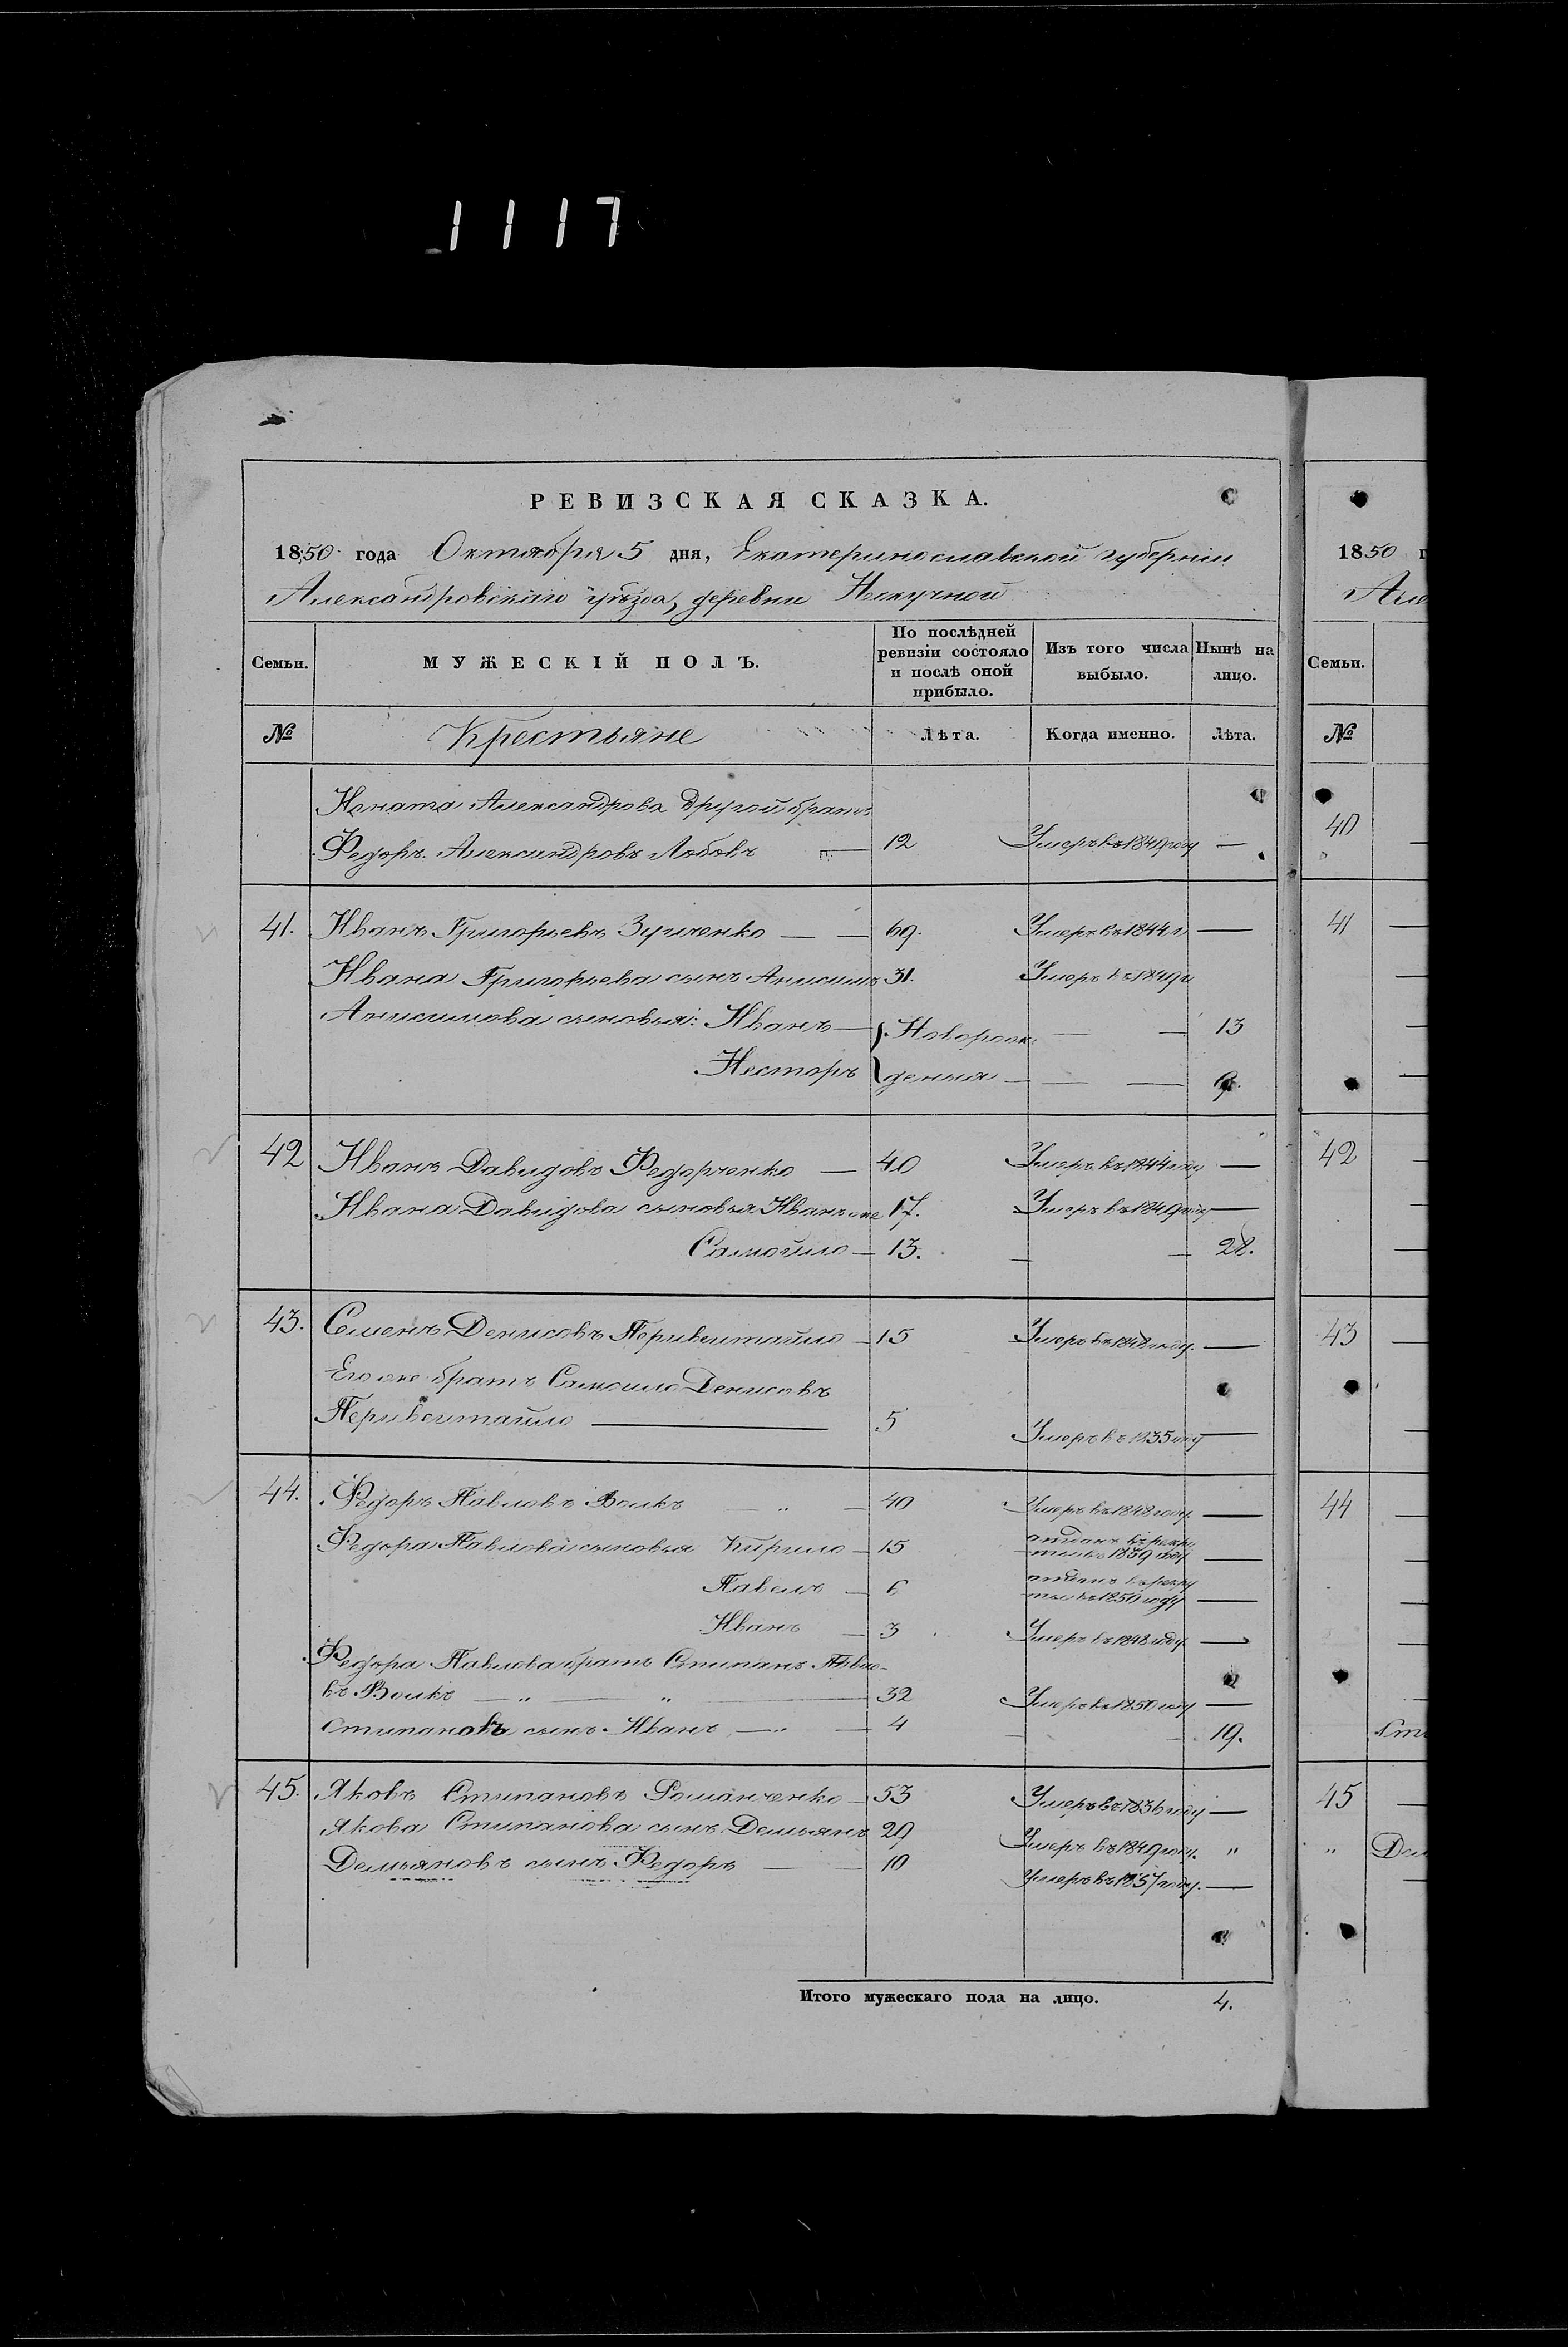 1117
РЕВИЗСКАЯ СКАЗКА.
1850 года Октября 5 дня, Екатеринославской губерніи
Александровскаго уѣзда, деревни Нескучной
Семьи. МУЖЕСКІЙ ПОЛЪ. По послѣдней ревизіи состояло и послѣ оной прибыло. Изъ того числа выбыло. Нынѣ на лицо.
№ Крестьяне Лѣта. Когда именно. Лѣта.
Александрова другой братъ
Федоръ Александровъ 12 Умеръ въ 1849 году —
41. Иванъ Григорьевъ — — 69. Умеръ въ 1844 г —
Ивана Григорьева сынъ Анисимъ 31. Умеръ въ 1849 г
Анисимова сыновья: Иванъ — Новорож — — 13
Несторъ денныя — — — 9.
42 Иванъ Давидовъ Федорченко — 40 Умеръ въ 1844 году —
Ивана Давидова сыновья Иванъ 17. Умеръ въ 1849 году —
Самойло — 13. — — 28.
43. Семенъ Денисовъ — 15 Умеръ въ 1848 году. —
Его же братъ Самойло Денисовъ
— 5 Умеръ въ 1835 году —
44. Федоръ Павловъ Волкъ — „ — 40 Умеръ въ 1848 году. —
Федора Павлова сыновья Кирило — 15 отданъ въ рекру
ты въ 1839 году —
Павелъ — 6 отданъ въ рекру
ты въ 1850 году —
Иванъ — 3 Умеръ въ 1848 году —
Федора Павлова братъ Стипанъ Павло-
въ Волкъ — „ — „ — 32 Умеръ въ 1850 году —
Стипановъ сынъ Иванъ — „ — 4 — — 19.
45. Яковъ Стипановъ Романченко — 53 Умеръ въ 1836 году —
Якова Стипанова сынъ Демьянъ 29 Умеръ въ 1849 году. „
Демьяновъ сынъ Федоръ — — 10 Умеръ въ 1837 году. —
Итого мужескаго пола на лицо. 4.
1850 г
Але
Семьи.
№
40 —
41 —
42 —
43 —
44 —
Сти
45 —
„ Дем